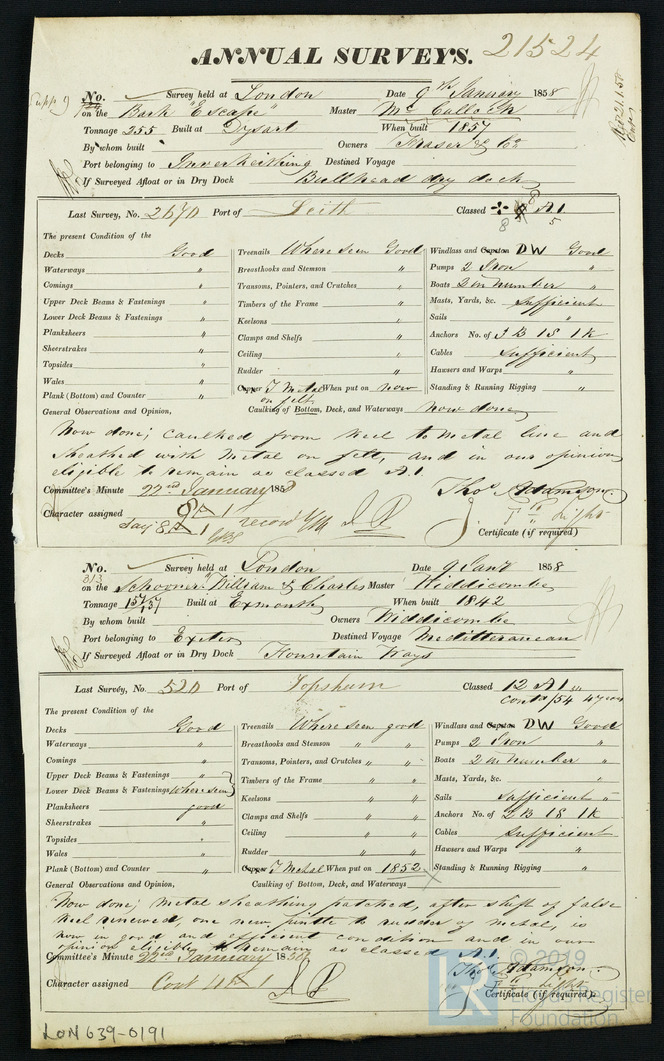 ANNUAL SURVEYS. 21524
No. Survey held at London Date 9th January 1858
on the Bark "Escape" Master Mc Culloch
Tonnage 255 Built at Dysart When built 1857
By whom built Owners Fraser & Co
Port belonging to Inverkeithing Destined Voyage
If Surveyed Afloat or in Dry Dock Bullhead dry dock
Last Survey, No. 2670 Port of Leith Classed A.1
The present Condition of the
Decks Good Treenails Where seen Good Windlass and Capstan DW Good
Waterways " Breasthooks and Stemson " Pumps 2 Iron "
Comings " Transoms, Pointers, and Crutches " Boats 2 in number "
Upper Deck Beams & Fastenings " Timbers of the Frame " Masts, Yards, &c. Sufficient
Lower Deck Beams & Fastenings " Keelsons " Sails "
Planksheers " Clamps and Shelfs " Anchors No. of 3 B 1 S 1 K
Sheerstrakes " Ceiling " Cables Sufficient
Topsides " Rudder " Hawsers and Warps "
Wales " Copper Y Metal When put on now Standing & Running Rigging "
Plank (Bottom) and Counter " on felt
General Observations and Opinion, Caulking of Bottom, Deck, and Waterways now done
Now done; caulked from keel to metal line and
sheathed with metal on felt, and in our opinion
eligible to remain as classed A.1.
Committee's Minute 22nd January 1858 Thos Adamson
Character assigned 8 A 1
Say 8 A 1 record
Certificate (if required)
No. Survey held at London Date 9 Jany 1858
313
on the Schooner "William & Charles Master Widdicombe
Tonnage 157/137 Built at Exmouth When built 1842
By whom built Owners Widdicombe
Port belonging to Exeter Destined Voyage Mediterranean
If Surveyed Afloat or in Dry Dock Fountain Ways
Last Survey, No. 520 Port of Topsham Classed 12 A 1
Contd /54 4 years
The present Condition of the
Decks Good Treenails Where seen good Windlass and Capstan DW Good
Waterways " Breasthooks and Stemson " " Pumps 2 Iron "
Comings " Transoms, Pointers, and Crutches " " Boats 2 in number "
Upper Deck Beams & Fastenings " Timbers of the Frame " " Masts, Yards, &c. "
Lower Deck Beams & Fastenings Where seen Keelsons " " Sails Sufficient "
Planksheers good Clamps and Shelfs " " Anchors No. of 2 B 1 S 1 K
Sheerstrakes " Ceiling " " Cables Sufficient
Topsides " Rudder " " Hawsers and Warps "
Wales " Copper Y Metal When put on 1852 Standing & Running Rigging "
Plank (Bottom) and Counter "
General Observations and Opinion, Caulking of Bottom, Deck, and Waterways
Now done; metal sheathing patched, after shift of false
keel renewed, one new pintle to rudder of metal, is
now in good and efficient condition and in our
opinion eligible to remain as classed A.1.
Committee's Minute 22nd January 1858 Thos Adamson
Character assigned Cont A 1
Certificate (if required)
LON 639-0191
© 2019
LR Lloyd's Register
Foundation